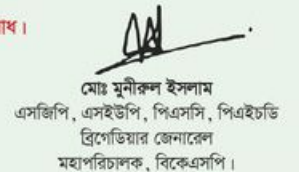 াধ।
মোঃ মুনীরুল ইসলাম
এসজিপি, এসইউপি, পিএসসি, পিএইচডি
ব্রিগেডিয়ার জেনারেল
মহাপরিচালক, বিকেএসপি।